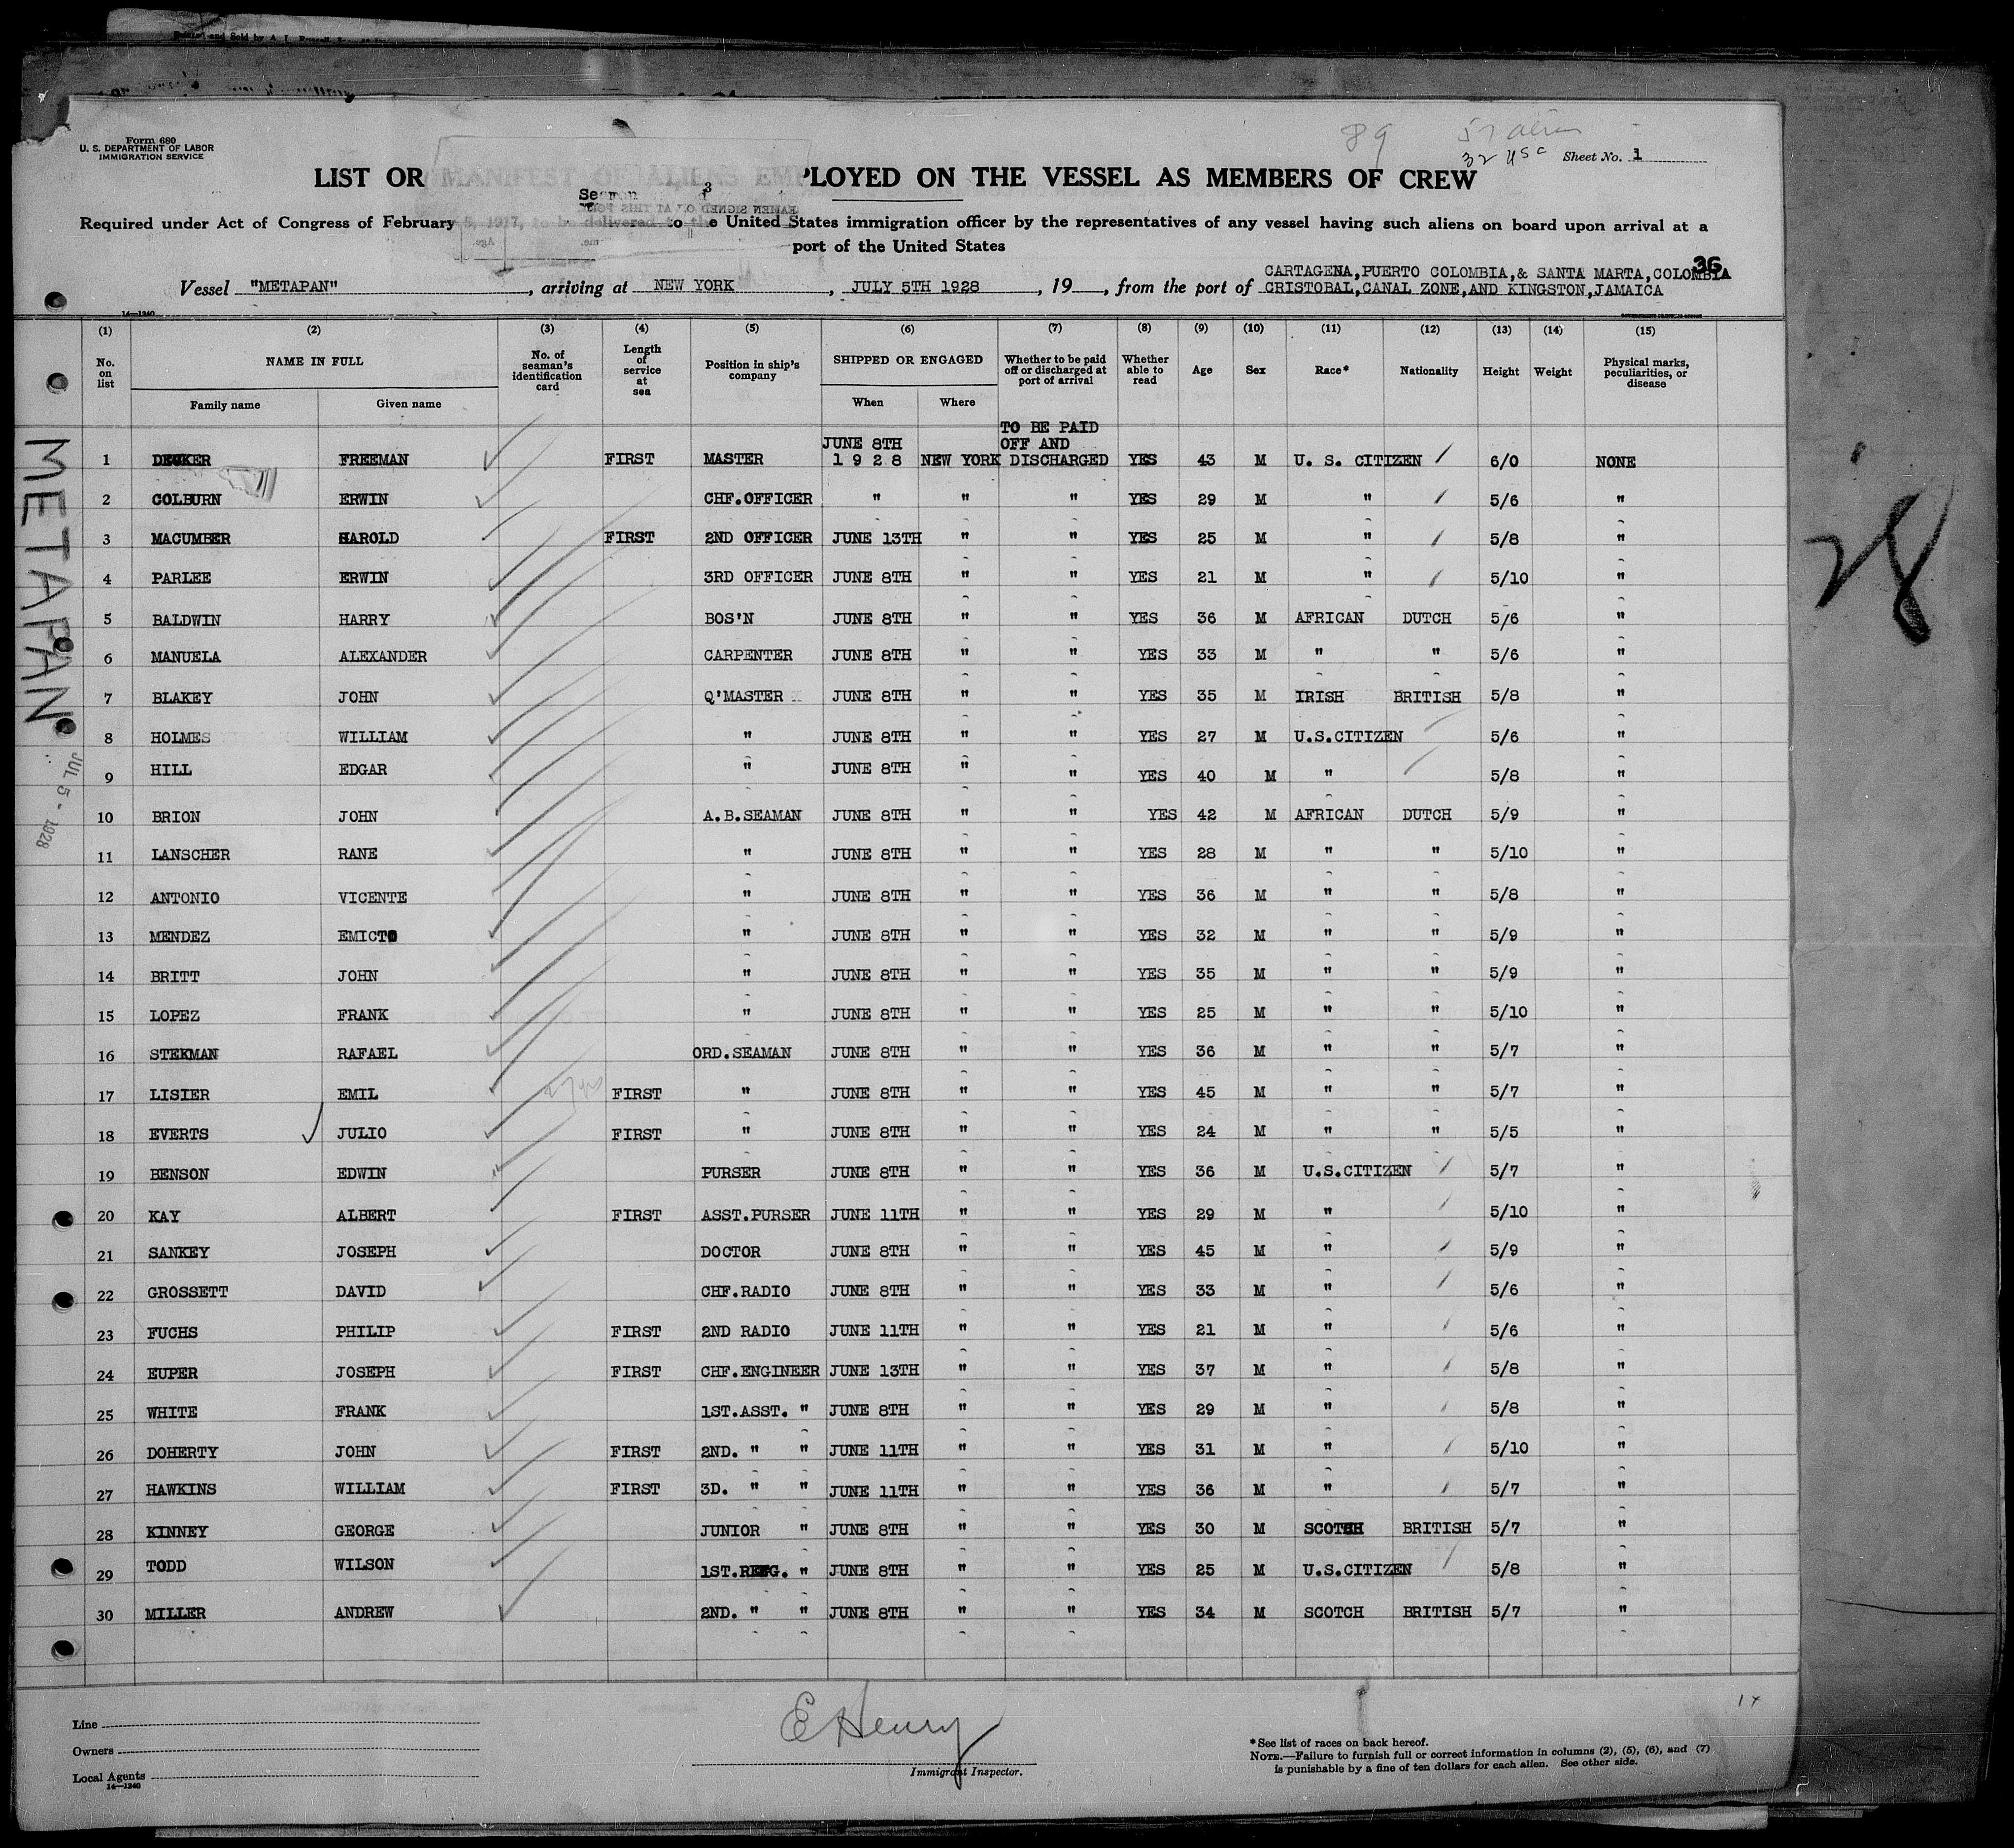 Form 680
U. S. DEPARTMENT OF LABOR
IMMIGRATION SERVICE
89
57 alien
32 USC
Sheet No. 1
LIST OR MANIFEST OF ALIENS EMPLOYED ON THE VESSEL AS MEMBERS OF CREW
Required under Act of Congress of February 5, 1917, to be delivered to the United States immigration officer by the representatives of any vessel having such aliens on board upon arrival at a
port of the United States
36
CARTAGENA, PUERTO COLOMBIA, & SANTA MARTA, COLOMBIA
Vessel "METAPAN", arriving at NEW YORK, JULY 5TH 1928, 19, from the port of CRISTOBAL, CANAL ZONE, AND KINGSTON, JAMAICA
14—1240
(1) (2) (3) (4) (5) (6) (7) (8) (9) (10) (11) (12) (13) (14) (15)
No. on list NAME IN FULL No. of seaman's identification card Length of service at sea Position in ship's company SHIPPED OR ENGAGED Whether to be paid off or discharged at port of arrival Whether able to read Age Sex Race* Nationality Height Weight Physical marks, peculiarities, or disease
Family name Given name When Where
1 DECKER FREEMAN FIRST MASTER JUNE 8TH 1928 NEW YORK TO BE PAID OFF AND DISCHARGED YES 43 M U. S. CITIZEN 6/0 NONE
2 COLBURN ERWIN CHF.OFFICER " " " YES 29 M " 5/6 "
3 MACUMBER HAROLD FIRST 2ND OFFICER JUNE 13TH " " YES 25 M " 5/8 "
4 PARLEE ERWIN 3RD OFFICER JUNE 8TH " " YES 21 M " 5/10 "
5 BALDWIN HARRY BOS'N JUNE 8TH " " YES 36 M AFRICAN DUTCH 5/6 "
6 MANUELA ALEXANDER CARPENTER JUNE 8TH " " YES 33 M " " 5/6 "
7 BLAKEY JOHN Q'MASTER JUNE 8TH " " YES 35 M IRISH BRITISH 5/8 "
8 HOLMES WILLIAM " JUNE 8TH " " YES 27 M U.S.CITIZEN 5/6 "
9 HILL EDGAR " JUNE 8TH " " YES 40 M " 5/8 "
10 BRION JOHN A.B.SEAMAN JUNE 8TH " " YES 42 M AFRICAN DUTCH 5/9 "
11 LANSCHER RANE " JUNE 8TH " " YES 28 M " " 5/10 "
12 ANTONIO VICENTE " JUNE 8TH " " YES 36 M " " 5/8 "
13 MENDEZ EMICTO " JUNE 8TH " " YES 32 M " " 5/9 "
14 BRITT JOHN " JUNE 8TH " " YES 35 M " " 5/9 "
15 LOPEZ FRANK " JUNE 8TH " " YES 25 M " " 5/10 "
16 STEKMAN RAFAEL ORD.SEAMAN JUNE 8TH " " YES 36 M " " 5/7 "
17 LISIER EMIL FIRST " JUNE 8TH " " YES 45 M " " 5/7 "
18 EVERTS JULIO FIRST " JUNE 8TH " " YES 24 M " " 5/5 "
19 BENSON EDWIN PURSER JUNE 8TH " " YES 36 M U.S.CITIZEN 5/7 "
20 KAY ALBERT FIRST ASST.PURSER JUNE 11TH " " YES 29 M " 5/10 "
21 SANKEY JOSEPH DOCTOR JUNE 8TH " " YES 45 M " 5/9 "
22 GROSSETT DAVID CHF.RADIO JUNE 8TH " " YES 33 M " 5/6 "
23 FUCHS PHILIP FIRST 2ND RADIO JUNE 11TH " " YES 21 M " 5/6 "
24 EUPER JOSEPH FIRST CHF.ENGINEER JUNE 13TH " " YES 37 M " 5/8 "
25 WHITE FRANK 1ST.ASST. " JUNE 8TH " " YES 29 M " 5/8 "
26 DOHERTY JOHN FIRST 2ND. " " JUNE 11TH " " YES 31 M " 5/10 "
27 HAWKINS WILLIAM FIRST 3D. " " JUNE 11TH " " YES 36 M " 5/7 "
28 KINNEY GEORGE JUNIOR " JUNE 8TH " " YES 30 M SCOTCH BRITISH 5/7 "
29 TODD WILSON 1ST.REFG. " JUNE 8TH " " YES 25 M U.S.CITIZEN 5/8 "
30 MILLER ANDREW 2ND. " " JUNE 8TH " " YES 34 M SCOTCH BRITISH 5/7 "
METAPAN
JUL 5 - 1928
28
Line
Owners
Local Agents
14—1240
E Henry
Immigrant Inspector.
*See list of races on back hereof.
NOTE.—Failure to furnish full or correct information in columns (2), (5), (6), and (7)
is punishable by a fine of ten dollars for each alien. See other side.